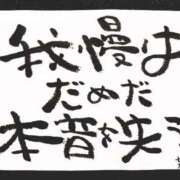 我慢は
だめだ
本音を失う